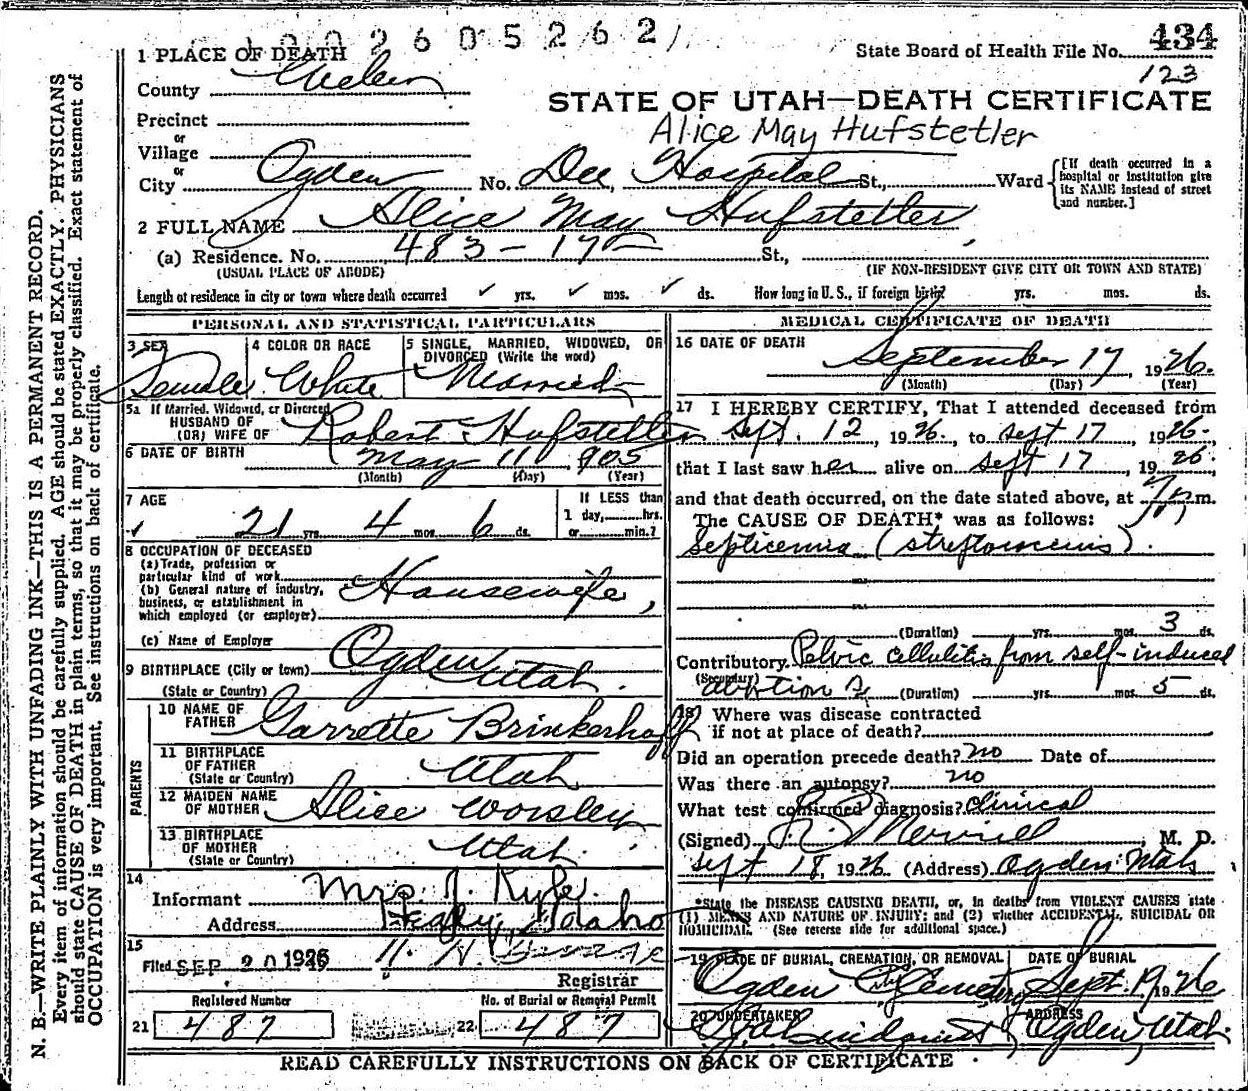 1 9 0 2 6 0 5 2 6 2
State Board of Health File No. 434
123
1 PLACE OF DEATH
County Weber
STATE OF UTAH—DEATH CERTIFICATE
Precinct
Alice May Hufstetler
or
Village
or
City Ogden No. Dee, Hospital St., Ward
[If death occurred in a hospital or institution give its NAME instead of street and number.]
2 FULL NAME Alice May Hufstetler
(a) Residence. No. 483 - 17 St.,
(USUAL PLACE OF ABODE) (IF NON-RESIDENT GIVE CITY OR TOWN AND STATE)
Length of residence in city or town where death occurred ✓ yrs. ✓ mos. ✓ ds. How long in U. S., if foreign birth? yrs. mos. ds.
PERSONAL AND STATISTICAL PARTICULARS
3 SEX 4 COLOR OR RACE 5 SINGLE, MARRIED, WIDOWED, OR DIVORCED (Write the word)
Female White Married
5a If Married, Widowed, or Divorced
HUSBAND OF
(OR) WIFE OF Robert Hufstetler
6 DATE OF BIRTH May 11, 1905
(Month) (Day) (Year)
7 AGE If LESS than
✓ 21 yrs. 4 mos. 6 ds. 1 day,......hrs.
or......min.?
8 OCCUPATION OF DECEASED
(a) Trade, profession or
particular kind of work
(b) General nature of industry,
business, or establishment in
which employed (or employer) Housewife,
(c) Name of Employer
9 BIRTHPLACE (City or town) Ogden
(State or Country) Utah.
PARENTS
10 NAME OF
FATHER Garrette Brinkerhoff
11 BIRTHPLACE
OF FATHER Utah
(State or Country)
12 MAIDEN NAME
OF MOTHER Alice Worsley
13 BIRTHPLACE
OF MOTHER Utah.
(State or Country)
14
Informant Mrs. J. Kyle.
Address Idaho
15
Filed SEP 20 1926
Registrar
Registered Number No. of Burial or Removal Permit
21 487 22 487
MEDICAL CERTIFICATE OF DEATH
16 DATE OF DEATH
September 17, 1926.
(Month) (Day) (Year)
17 I HEREBY CERTIFY, That I attended deceased from
Sept. 12, 1926., to Sept 17, 1926.
that I last saw her alive on Sept 17, 1926.
and that death occurred, on the date stated above, at m.
The CAUSE OF DEATH* was as follows:
Septicemia (streptococcus).
(Duration) yrs. mos. 3 ds.
Contributory Pelvic cellulitis from self-induced
(Secondary) abortion (Duration) yrs. mos. 5 ds.
18 Where was disease contracted
if not at place of death?
Did an operation precede death? no Date of
Was there an autopsy? no
What test confirmed diagnosis? clinical
(Signed) R. Merrill, M. D.
Sept 18, 1926. (Address) Ogden Utah
*State the DISEASE CAUSING DEATH, or, in deaths from VIOLENT CAUSES state
(1) MEANS AND NATURE OF INJURY; and (2) whether ACCIDENTAL, SUICIDAL OR
HOMICIDAL. (See reverse side for additional space.)
19 PLACE OF BURIAL, CREMATION, OR REMOVAL DATE OF BURIAL
Ogden City Cemetery Sept. 19, 1926
20 UNDERTAKER ADDRESS
Lindquist Ogden, Utah.
READ CAREFULLY INSTRUCTIONS ON BACK OF CERTIFICATE
N. B.—WRITE PLAINLY WITH UNFADING INK—THIS IS A PERMANENT RECORD.
Every item of information should be carefully supplied. AGE should be stated EXACTLY. PHYSICIANS
should state CAUSE OF DEATH in plain terms, so that it may be properly classified. Exact statement of
OCCUPATION is very important. See instructions on back of certificate.